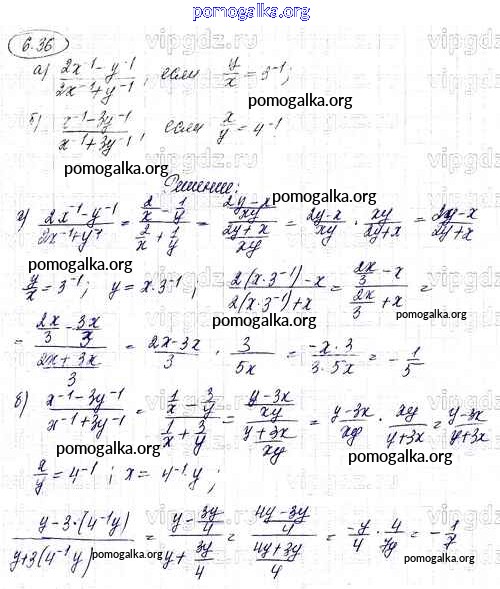 pomogalka.org
6.36
а) (2x⁻¹ - y⁻¹)/(2x⁻¹ + y⁻¹), если y/x = 3⁻¹;
pomogalka.org
б) (x⁻¹ - 3y⁻¹)/(x⁻¹ + 3y⁻¹), если x/y = 4⁻¹
pomogalka.org
Решение:
pomogalka.org
а) (2x⁻¹ - y⁻¹)/(2x⁻¹ + y⁻¹) = (2/x - 1/y)/(2/x + 1/y) = ((2y - x)/xy)/((2y + x)/xy) = (2y - x)/xy · xy/(2y + x) = (2y - x)/(2y + x)
pomogalka.org
y/x = 3⁻¹; y = x·3⁻¹; (2(x·3⁻¹) - x)/(2(x·3⁻¹) + x) = (2x/3 - x)/(2x/3 + x) =
pomogalka.org
pomogalka.org
= (2x/3 - 3x/3)/((2x + 3x)/3) = (2x - 3x)/3 · 3/5x = (-x·3)/(3·5x) = - 1/5
б) (x⁻¹ - 3y⁻¹)/(x⁻¹ + 3y⁻¹) = (1/x - 3/y)/(1/x + 3/y) = ((y - 3x)/xy)/((y + 3x)/xy) = (y - 3x)/xy · xy/(y + 3x) = (y - 3x)/(y + 3x)
pomogalka.org
pomogalka.org
x/y = 4⁻¹; x = 4⁻¹y;
(y - 3·(4⁻¹y))/(y + 3(4⁻¹y)) = (y - 3y/4)/(y + 3y/4) = ((4y - 3y)/4)/((4y + 3y)/4) = -y/4 · 4/7y = - 1/7
pomogalka.org
pomogalka.org